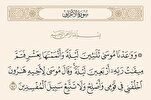 سورة الأعراف
وَوَٰعَدْنَا مُوسَىٰ ثَلَٰثِينَ لَيْلَةً وَأَتْمَمْنَٰهَا بِعَشْرٍ فَتَمَّ
مِيقَٰتُ رَبِّهِۦٓ أَرْبَعِينَ لَيْلَةً وَقَالَ مُوسَىٰ لِأَخِيهِ هَٰرُونَ
ٱخْلُفْنِى فِى قَوْمِى وَأَصْلِحْ وَلَا تَتَّبِعْ سَبِيلَ ٱلْمُفْسِدِينَ